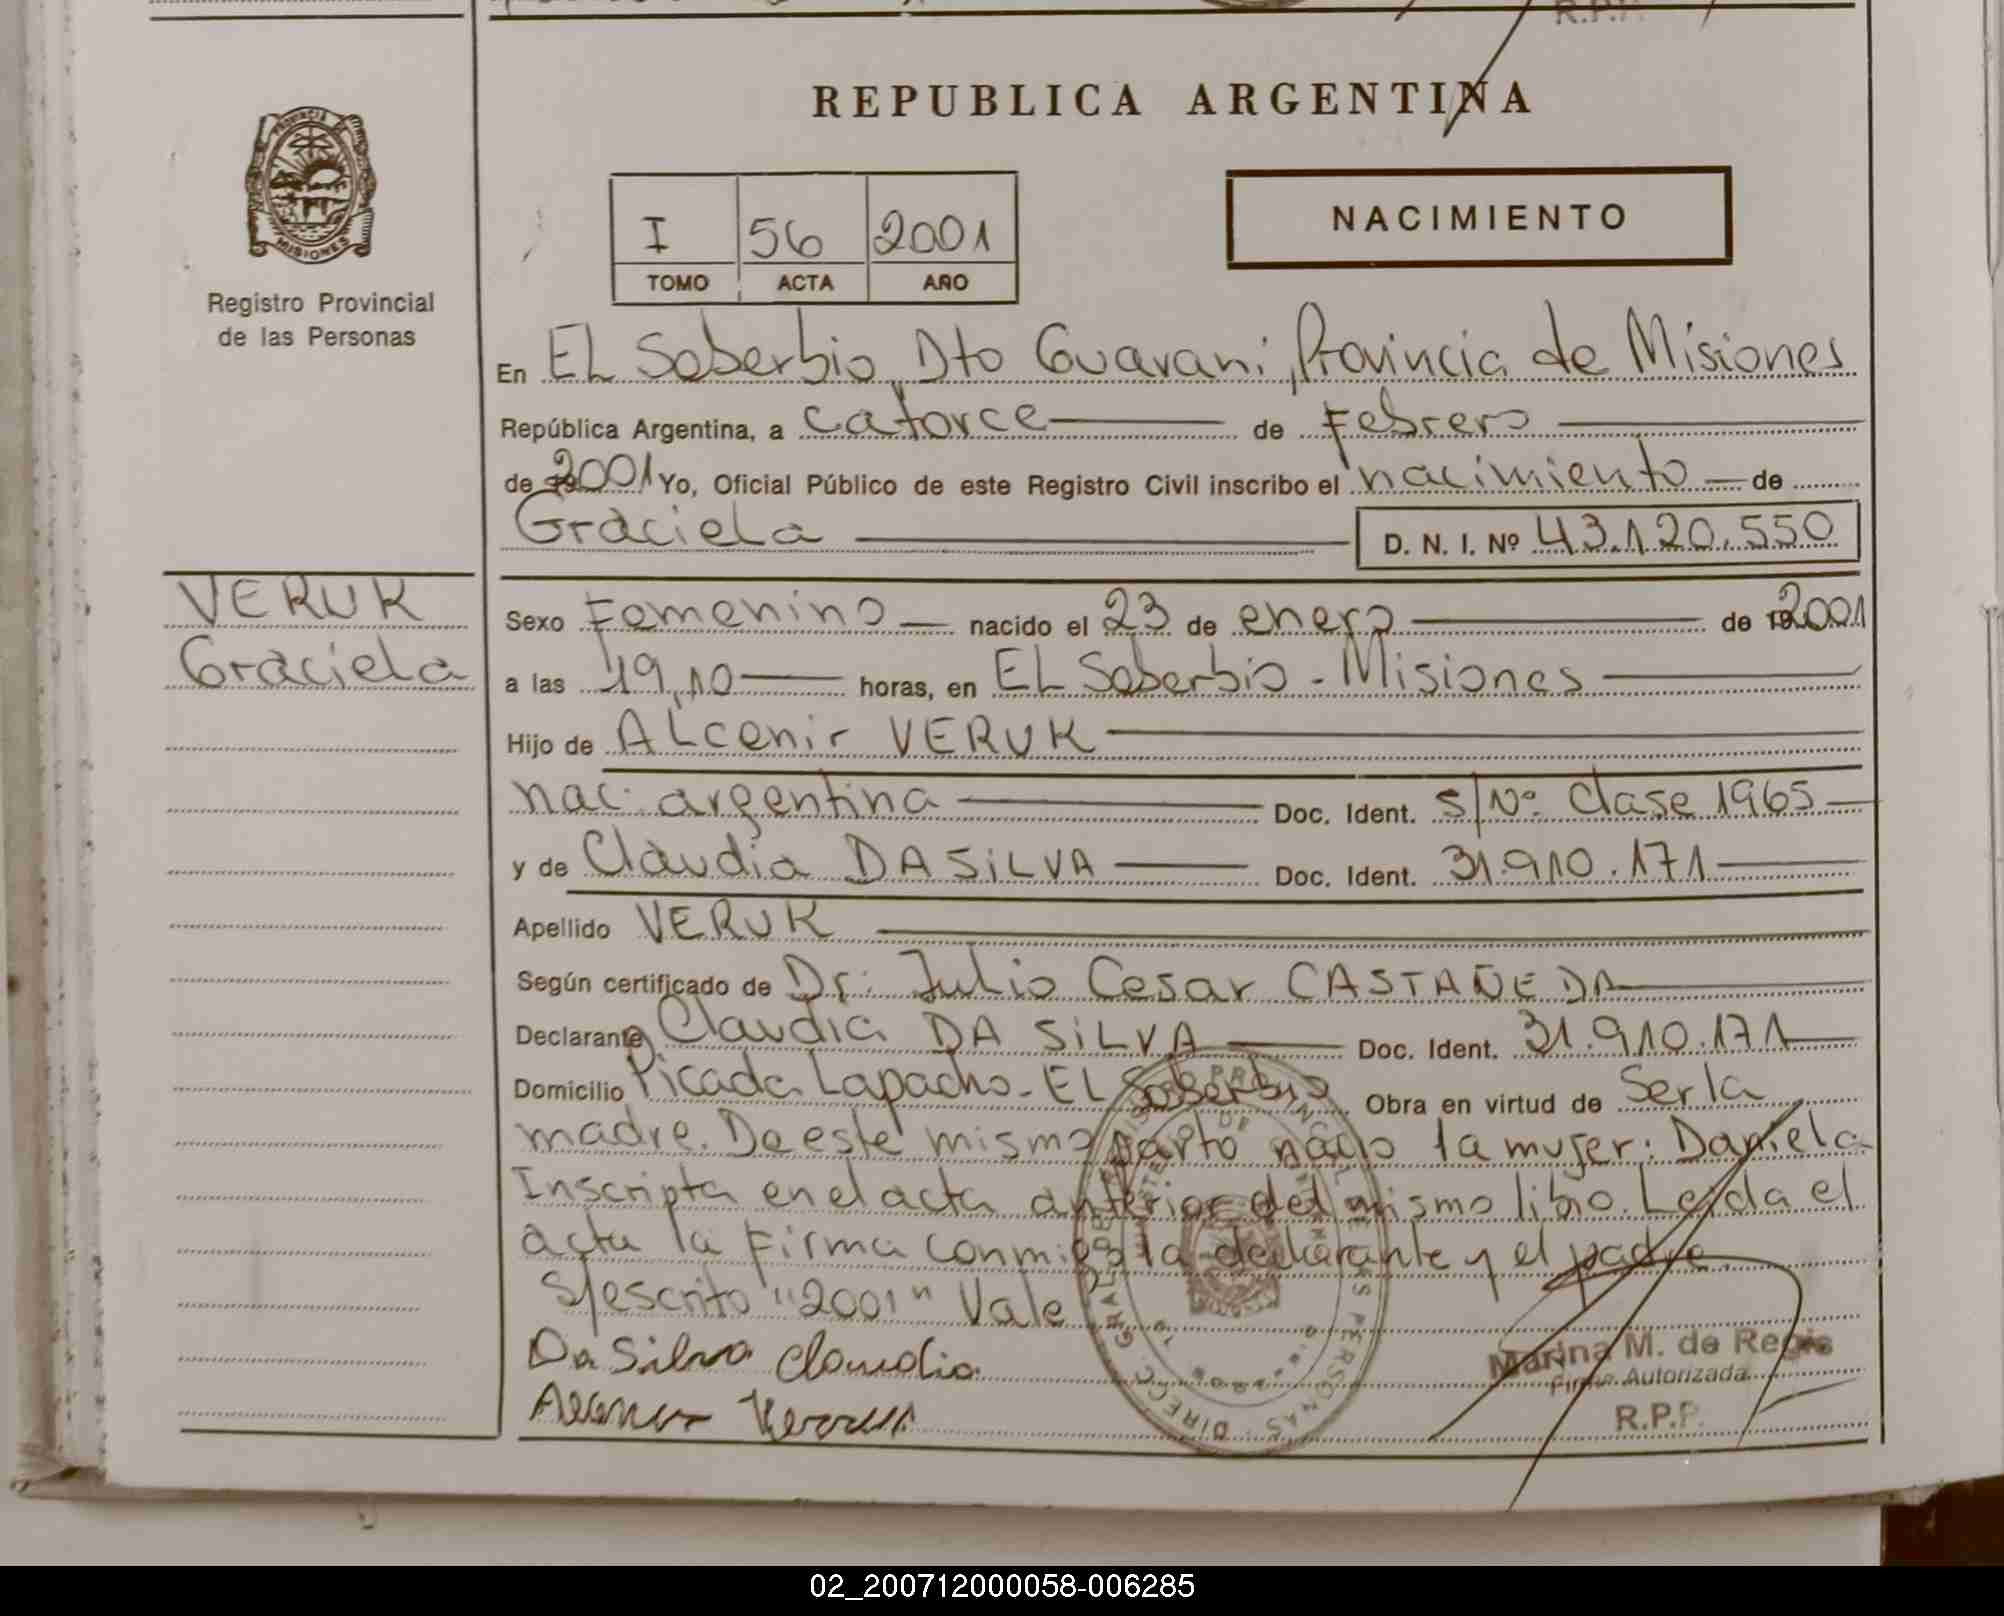 REPUBLICA ARGENTINA
PROVINCIA DE
MISIONES
Registro Provincial
de las Personas
I 56 2001
TOMO ACTA AÑO
NACIMIENTO
En EL Soberbio, Dto Guarani, Provincia de Misiones
República Argentina, a catorce de Febrero
de 2001 Yo, Oficial Público de este Registro Civil inscribo el nacimiento de
Graciela D. N. I. Nº 43.120.550
VERUK
Graciela
Sexo Femenino nacido el 23 de enero de 2001
a las 19,10 horas, en EL Soberbio - Misiones
Hijo de ALcenir VERUK
nac. argentina Doc. Ident. S/Nº Clase 1965
y de Claudia DA SiLVA Doc. Ident. 31.910.171
Apellido VERUK
Según certificado de Dr. Julio Cesar CASTAÑEDA
Declarante Claudia DA SiLVA Doc. Ident. 31.910.171
Domicilio Picada Lapacho - EL Soberbio Obra en virtud de Ser la
madre. De este mismo parto nacio la mujer: Daniela
Inscripta en el acta anterior del mismo libro. Leida el
acta la Firma conmigo la declarante y el padre.
S/escrito "2001" Vale
Da Silva Claudia
Marina M. de Regis
Firma Autorizada
R.P.P.
02_200712000058-006285